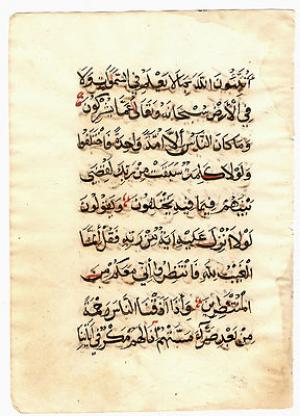 اتنبئون الله بما لا يعلم في السموات ولا
في الأرض سبحانه وتعالى عما يشركون
وما كان الناس إلا امة واحدة فاختلفوا
ولولا كلمة سبقت من ربك لقضي
بينهم فيما فيه يختلفون ويقولون
لولا نزل عليه اية من ربه فقل انما
الغيب لله فانتظروا اني معكم من
المنتظرين واذا اذقنا الناس رحمة
من بعد ضراء مستهم اذا لهم مكر في اياتنا